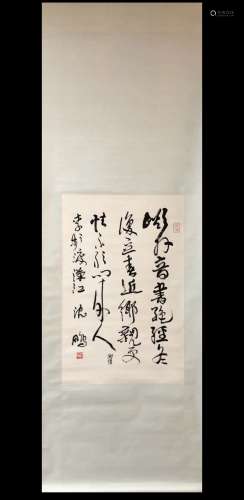 嶺外音書絕經冬
復立春近鄉情更
怯不敢問來人
李頻渡漢江 沈鵬